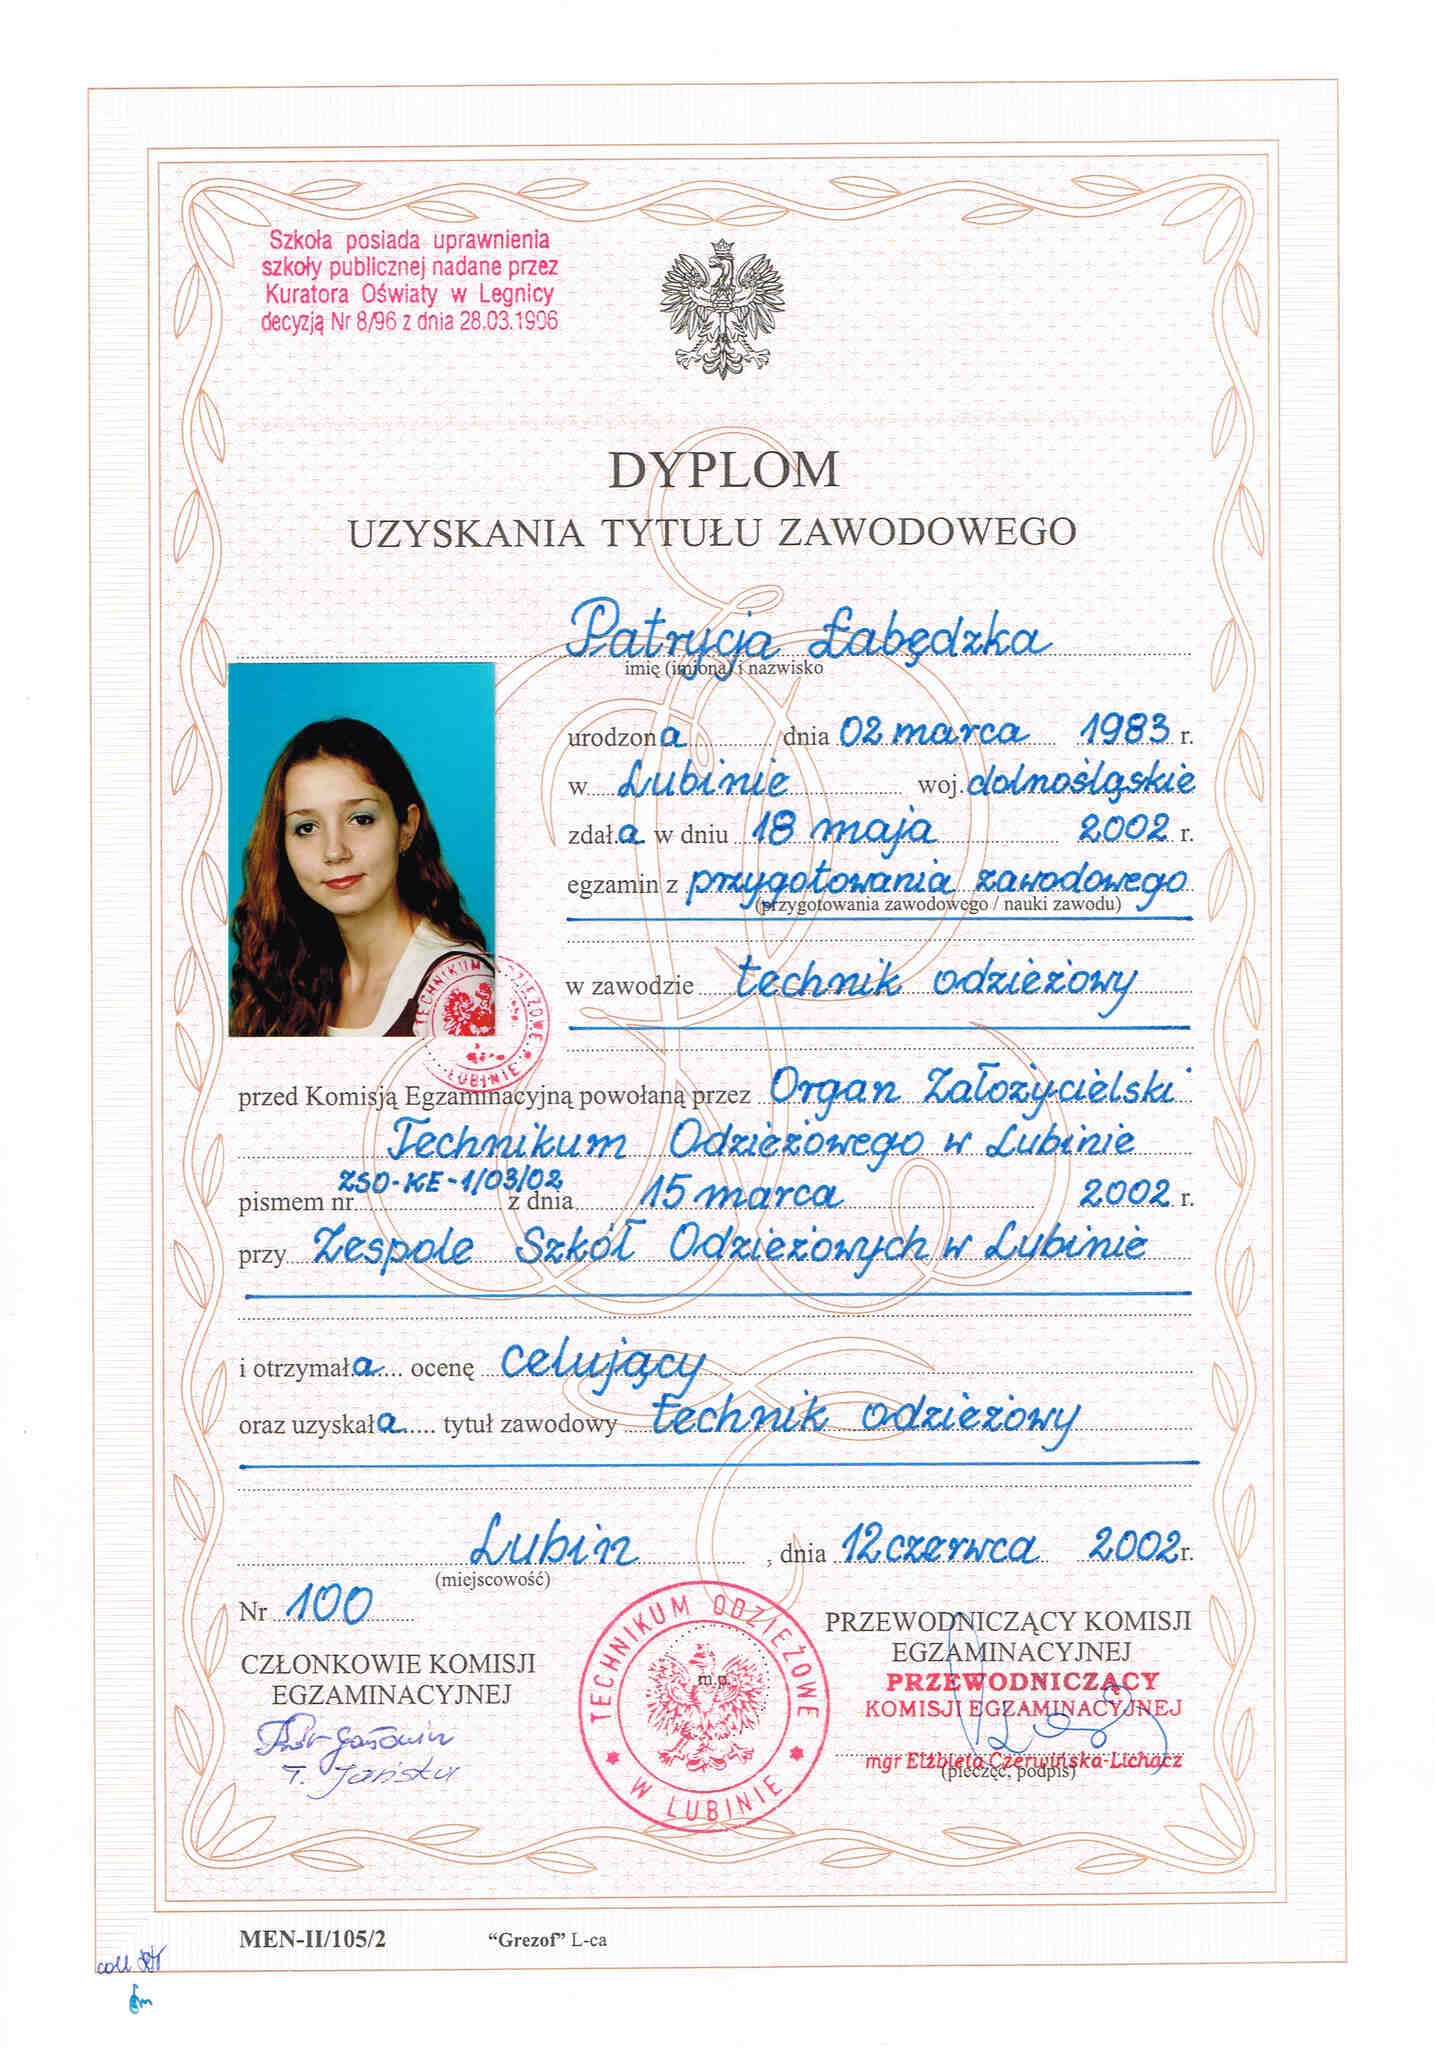 Szkoła posiada uprawnienia
szkoły publicznej nadane przez
Kuratora Oświaty w Legnicy
decyzją Nr 8/96 z dnia 28.03.1996
DYPLOM
UZYSKANIA TYTUŁU ZAWODOWEGO
Patrycja Łabędzka
imię (imiona) i nazwisko
urodzona dnia 02 marca 1983 r.
w Lubinie woj. dolnośląskie
zdała w dniu 18 maja 2002 r.
egzamin z przygotowania zawodowego
(przygotowania zawodowego / nauki zawodu)
w zawodzie technik odzieżowy
TECHNIKUM ODZIEŻOWE
LUBINIE
przed Komisją Egzaminacyjną powołaną przez Organ Założycielski
Technikum Odzieżowego w Lubinie
pismem nr ZSO-KE-1/03/02 z dnia 15 marca 2002 r.
przy Zespole Szkół Odzieżowych w Lubinie
i otrzymała ocenę celujący
oraz uzyskała tytuł zawodowy technik odzieżowy
Lubin, dnia 12 czerwca 2002 r.
(miejscowość)
Nr 100
CZŁONKOWIE KOMISJI
EGZAMINACYJNEJ
TECHNIKUM ODZIEŻOWE
W LUBINIE
m.p.
PRZEWODNICZĄCY KOMISJI
EGZAMINACYJNEJ
PRZEWODNICZĄCY
KOMISJI EGZAMINACYJNEJ
mgr Elżbieta Czerwińska-Lichacz
(pieczęć, podpis)
MEN-II/105/2 "Grezof" L-ca